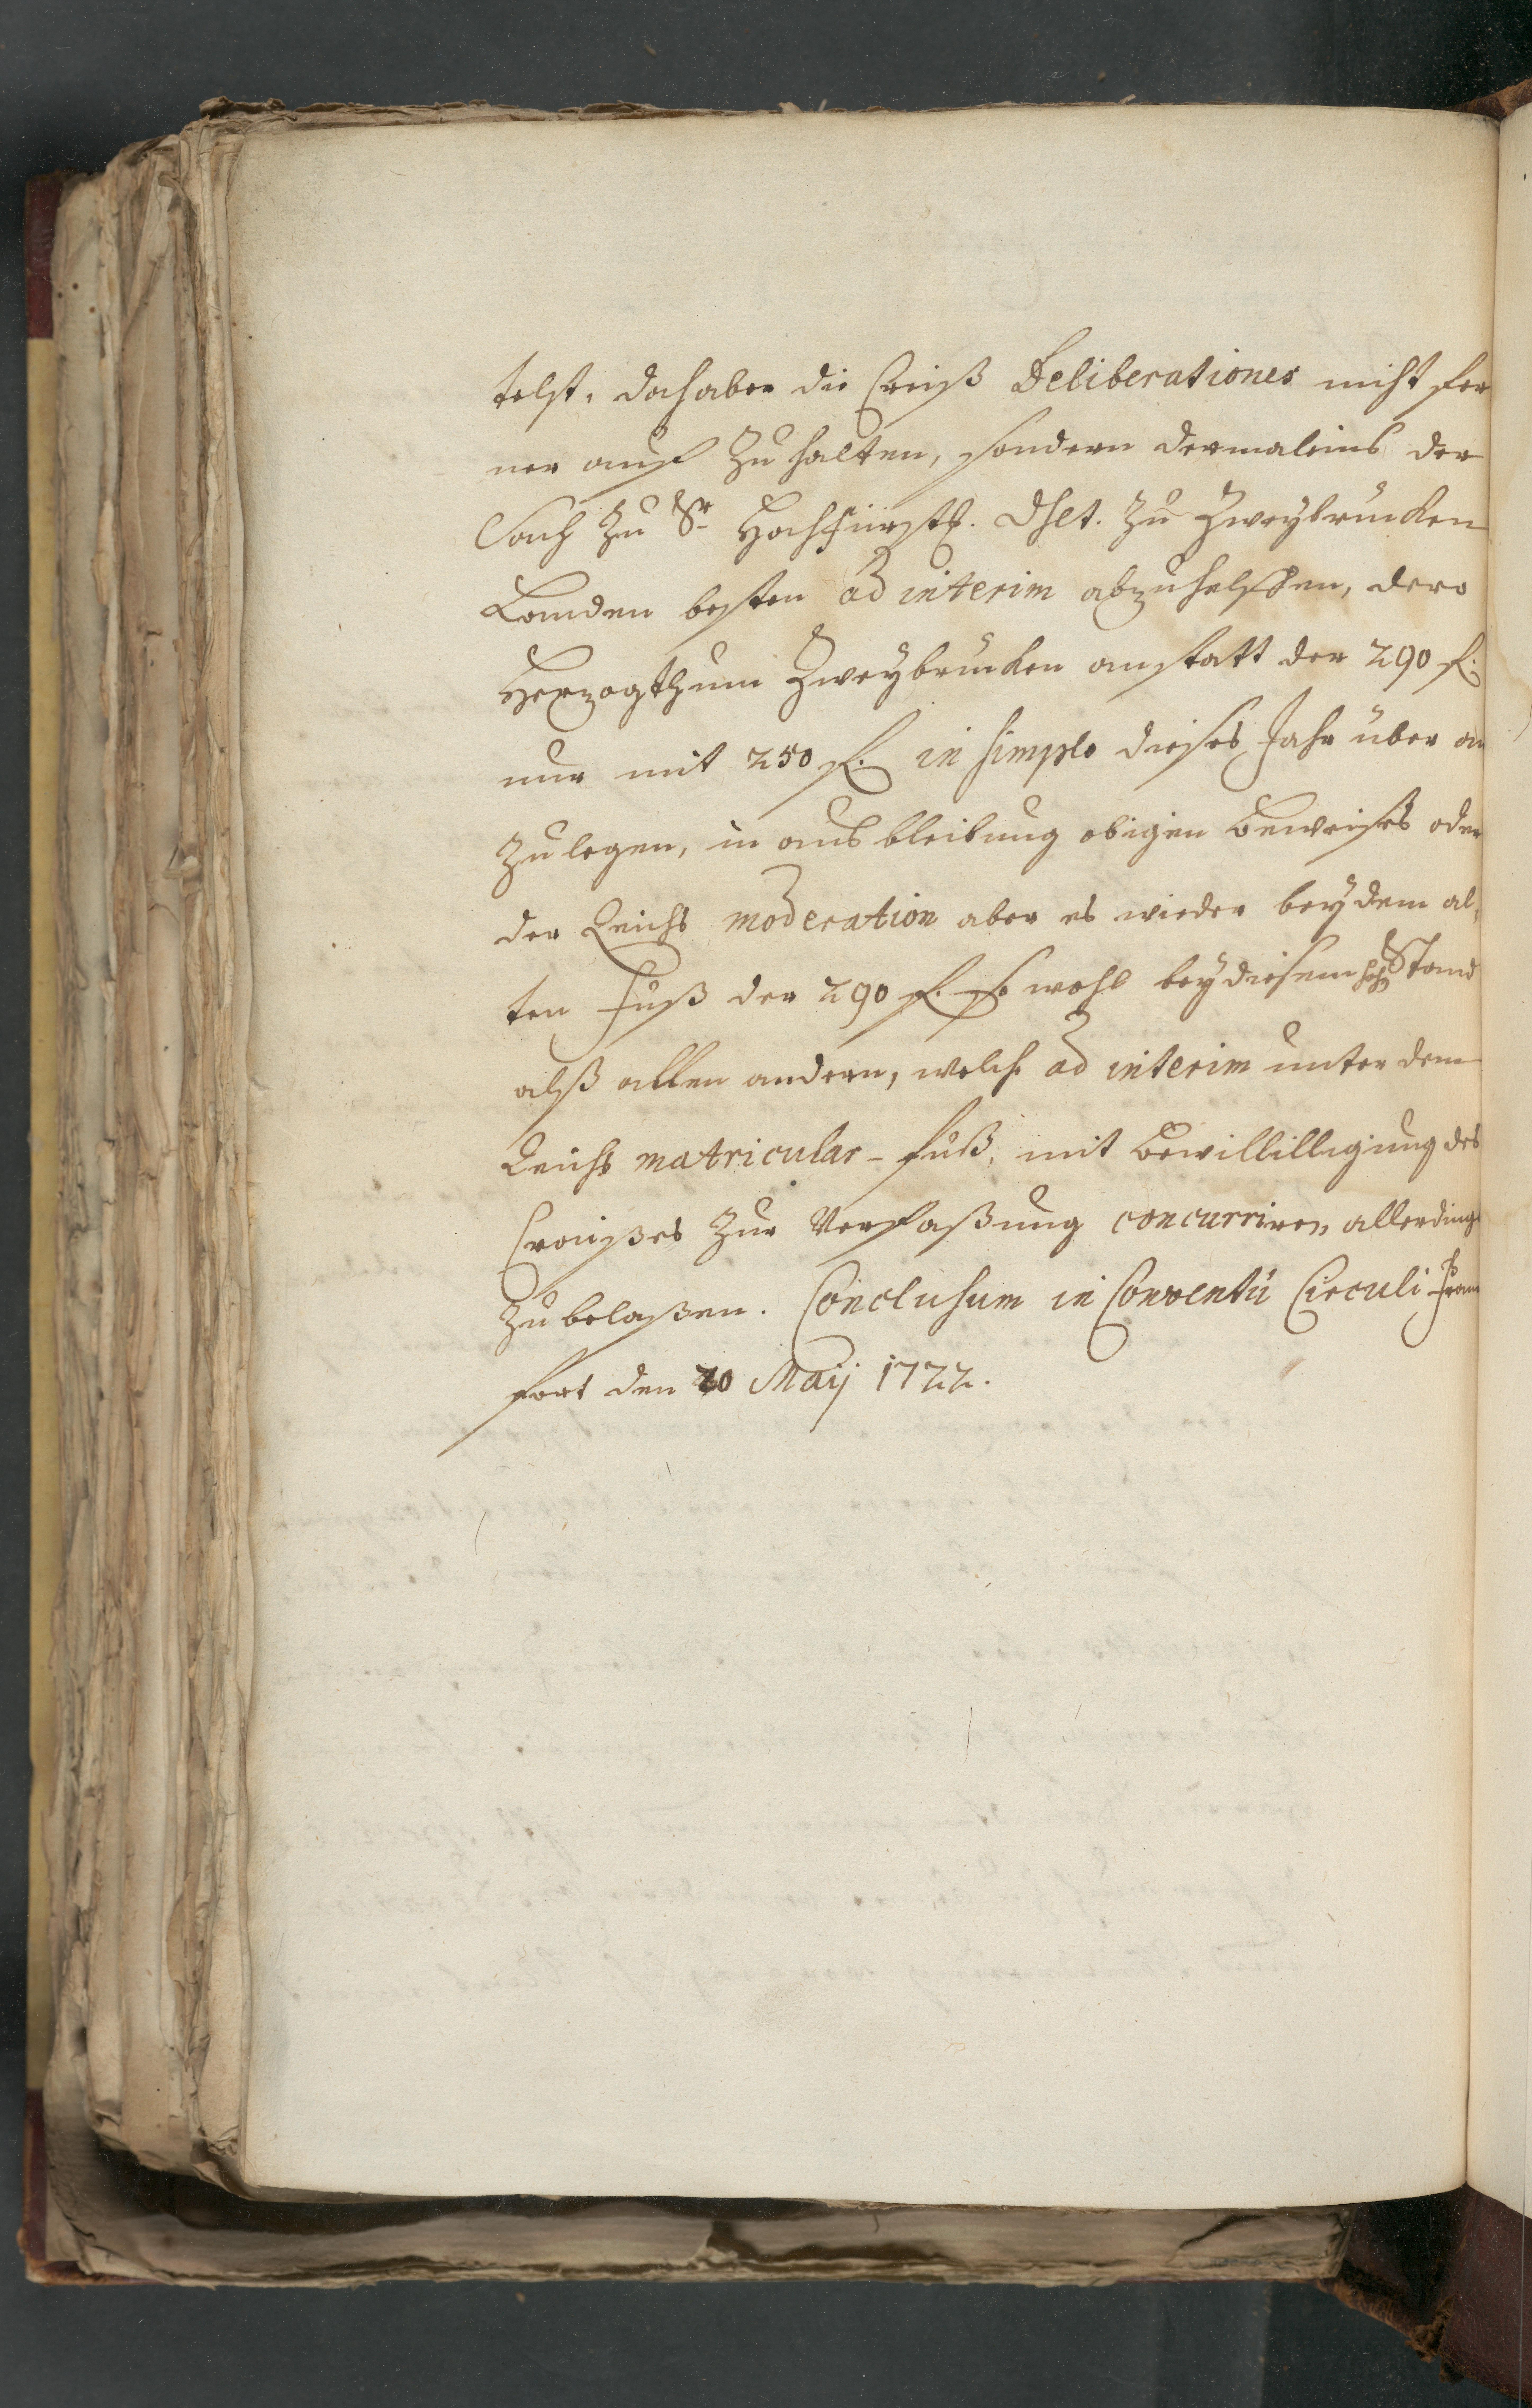 telst. doch aber die Creiß Deliberationes nicht fer
ner auf zu halten, sondern dermaleins der
Sach zu Sr Hochfürstl. Dhlt. zu Zweybrucken
Landen besten ad interim abzuhelffen, dero
Herzogthum Zweybrucken anstatt der 290 f.
nur mit 250 f. in simplo dieses Jahr über an
zulegen, in ausbleibung obigen beweises oder
der Reichs moderation aber es wieder bey dem al,
ten Fuß der 290 f. so wohl bey diesem hoh Stand
alß allen andern, welche ad interim unter dem
Reichs matricular-fuß, mit bewillilligung des
Craißes zur Verfaßung concurriren, allerdings
zu belaßen. Conclusum in Conventu Circuli Franc
fort den 20 Maij 1722.